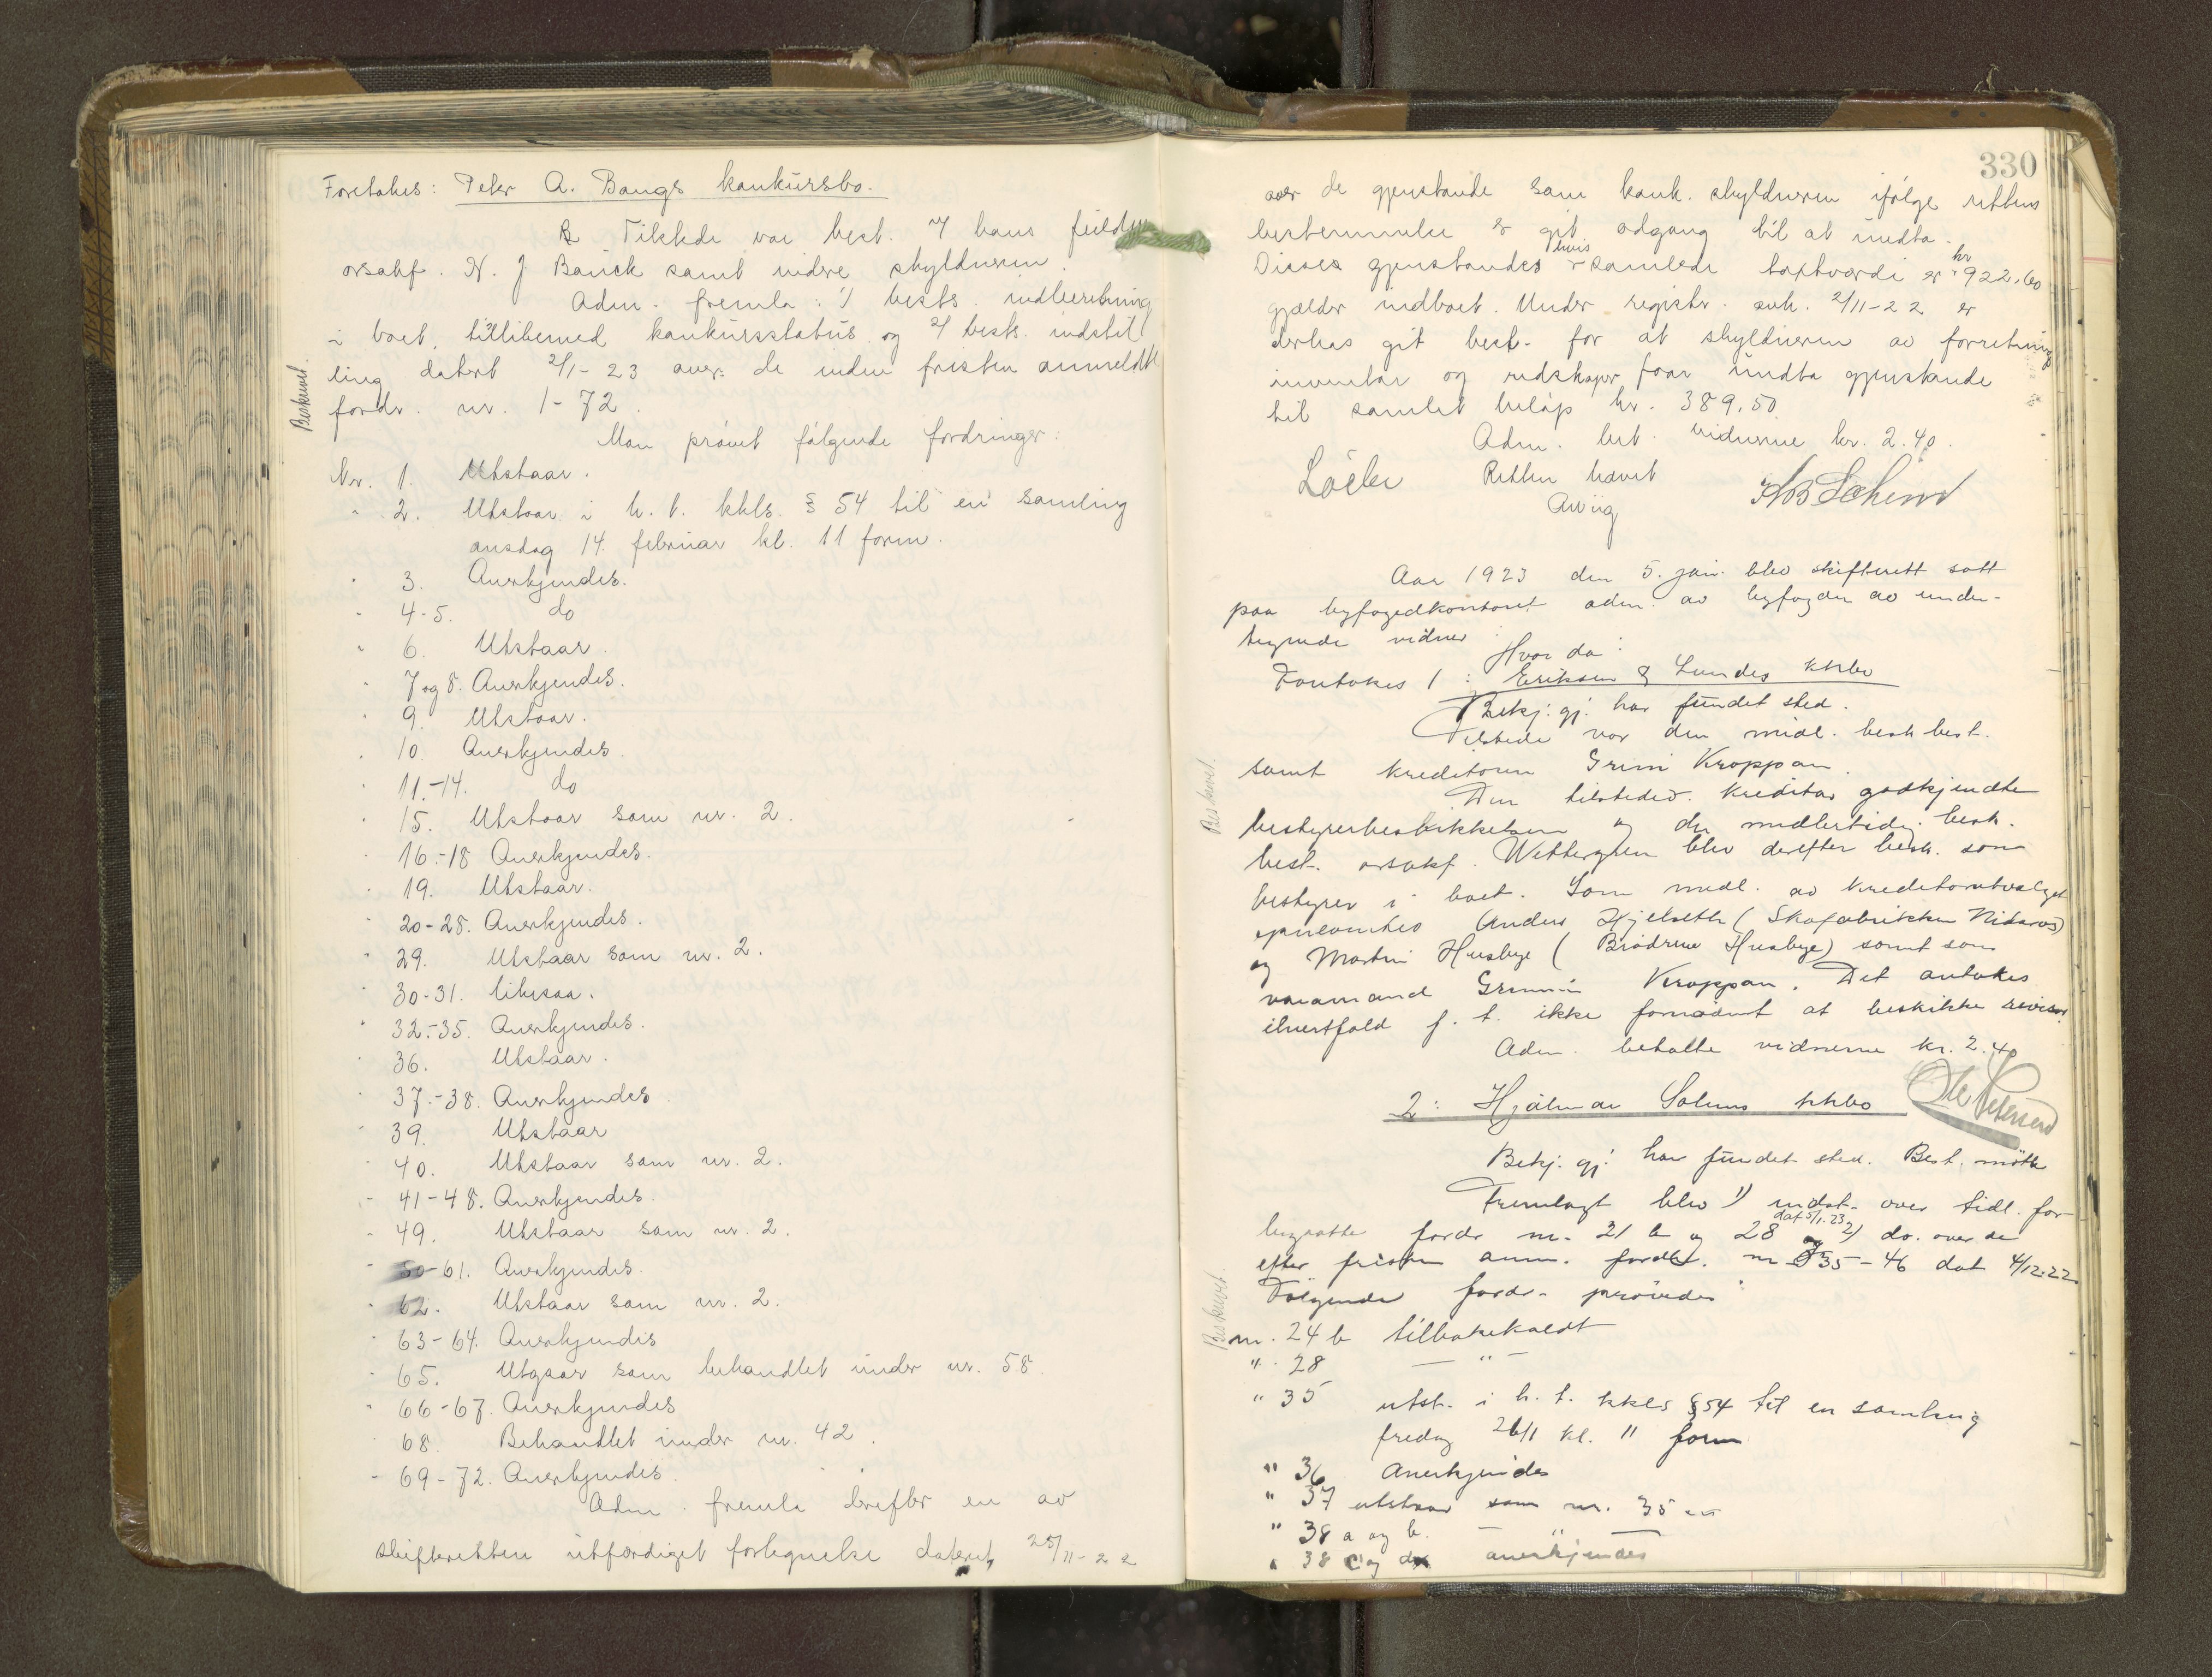 Foretakes: Peter A. Bangs konkursbo.
Tilstede var best. v/ hans fuldm
orsakf. N. J Bauck samt videre skyldneren.
Adm. fremla: 1/ bests. indberetning
i boet, tillikemed konkursstatus og 2/ bests. indstil
ling datert 2/1-23 over de inden fristen anmeldte
fordr. nr. 1-72.
Beskrevet.
Man prøvet følgende fordringer:
Nr. 1. Utstaar.
" 2. Utstaar i h. t. kkls. § 54 til en samling
onsdag 14. februar kl. 11 form.
" 3. Anerkjendes.
" 4-5. do
" 6. Utstaar.
" 7 og 8. Anerkjendes.
" 9. Utstaar.
" 10. Anerkjendes.
" 11.-14. do
" 15. Utstaar som nr. 2.
" 16.-18 Anerkjendes.
" 19. Utstaar.
" 20-28. Anerkjendes.
" 29. Utstaar som nr. 2.
" 30-31. likesaa.
" 32.-35. Anerkjendes.
" 36. Utstaar.
" 37.-38. Anerkjendes
" 39. Utstaar
" 40. Utstaar som nr. 2.
" 41-48. Anerkjendes.
" 49. Utstaar som nr. 2.
" 50-61. Anerkjendes.
" 62. Utstaar som nr. 2.
" 63-64. Anerkjendes
" 65. Utgaar som behandlet under nr. 58.
" 66-67. Anerkjendes
" 68. Behandlet under nr. 42.
" 69-72. Anerkjendes.
Adm. fremla derefter en av
skifteretten utfærdiget fortegnelse datert, 25/11-22
330
over de gjenstande som konk. skyldneren ifølge rettens
bestemmelse er git adgang til at undta.
Disses gjenstandes hvis samlede takstværdi er kr 922,60
gjælder indboet. Under registr. avh. 2/11-22 er
derhos git best. for at skyldneren av forretnings
inventar og redskaper faar undta gjenstande
til samlet beløp kr. 389,50.
Adm. bet. vidnerne kr. 2.40.
Retten hævet
Aar 1923 den 5. jan. blev skifterett satt
paa byfogedkontoret adm. av byfogden av under-
tegnede vidner
Hvor da:
Foretokes 1: Eriksen & Lundes kkbo
Bekj. gj. har fundet sted.
Tilstede var den midl. besk best.
samt kreditoren Grim Kroppan.
Beskrevet.
Den tilstedev. kreditor godkjendte
bestyrerbeskikkelsen og den midlertidig besk.
best. orsakf. Wettergren blev derefter besk. som
bestyrer i boet. Som medl. av kreditorutvalget
opnevntes Anders Hjelseth (Skofabrikken Nidaros)
og Martin Husbye (Brødrene Husbye) samt som
varamand Grimm Kroppan. Det antokes
ihvertfald f. t. ikke fornødent at beskikke revisor.
Adm. betalte vidnerne kr. 2.40
2: Hjalmar Solems kkbo
Bekj. gj. har fundet sted. Best. møtte
Fremlagt blev 1) indst. over tidl. for-
dat 5/1.23
begratte fordr nr. 21 b og 28 og 2) do. over de
efter fristen anm. fordr. nr 35-46 dat 4/12.22
Beskrevet.
Følgende fordr. prøvedes
nr. 24 b tilbakekaldt
" 28 — " —
" 35 utst. i h. t. kkls § 54 til en samling
fredag 26/1 kl. 11 form
" 36 anerkjendes
" 37 utstaar som nr. 35
" 38 a og b. — " —
" 38 c og d anerkjendes